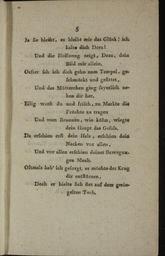 5
Ja sie bleibt, es bleibt mir das Glück! ich
halte dich Dora!
Und die Hoffnung zeigt, Dora, dein
Bild mir allein.
Oefter sah ich dich gehn zum Tempel, ge-
schmückt und gesittet,
Und das Mütterchen ging feyerlich ne-
ben dir her.
Eilig warst du und frisch, zu Markte die
Früchte zu tragen
Und vom Brunnen, wie kühn, wiegte
dein Haupt das Gefäss.
Da erschien erst dein Hals, erschien dein
Nacken vor allen,
Und vor allen erschien deiner Bewegun-
gen Maass.
Oftmals hab' ich gesorgt, es möchte der Krug
dir entstürzen,
Doch er hielte sich stet auf dem gerin-
gelten Tuch.